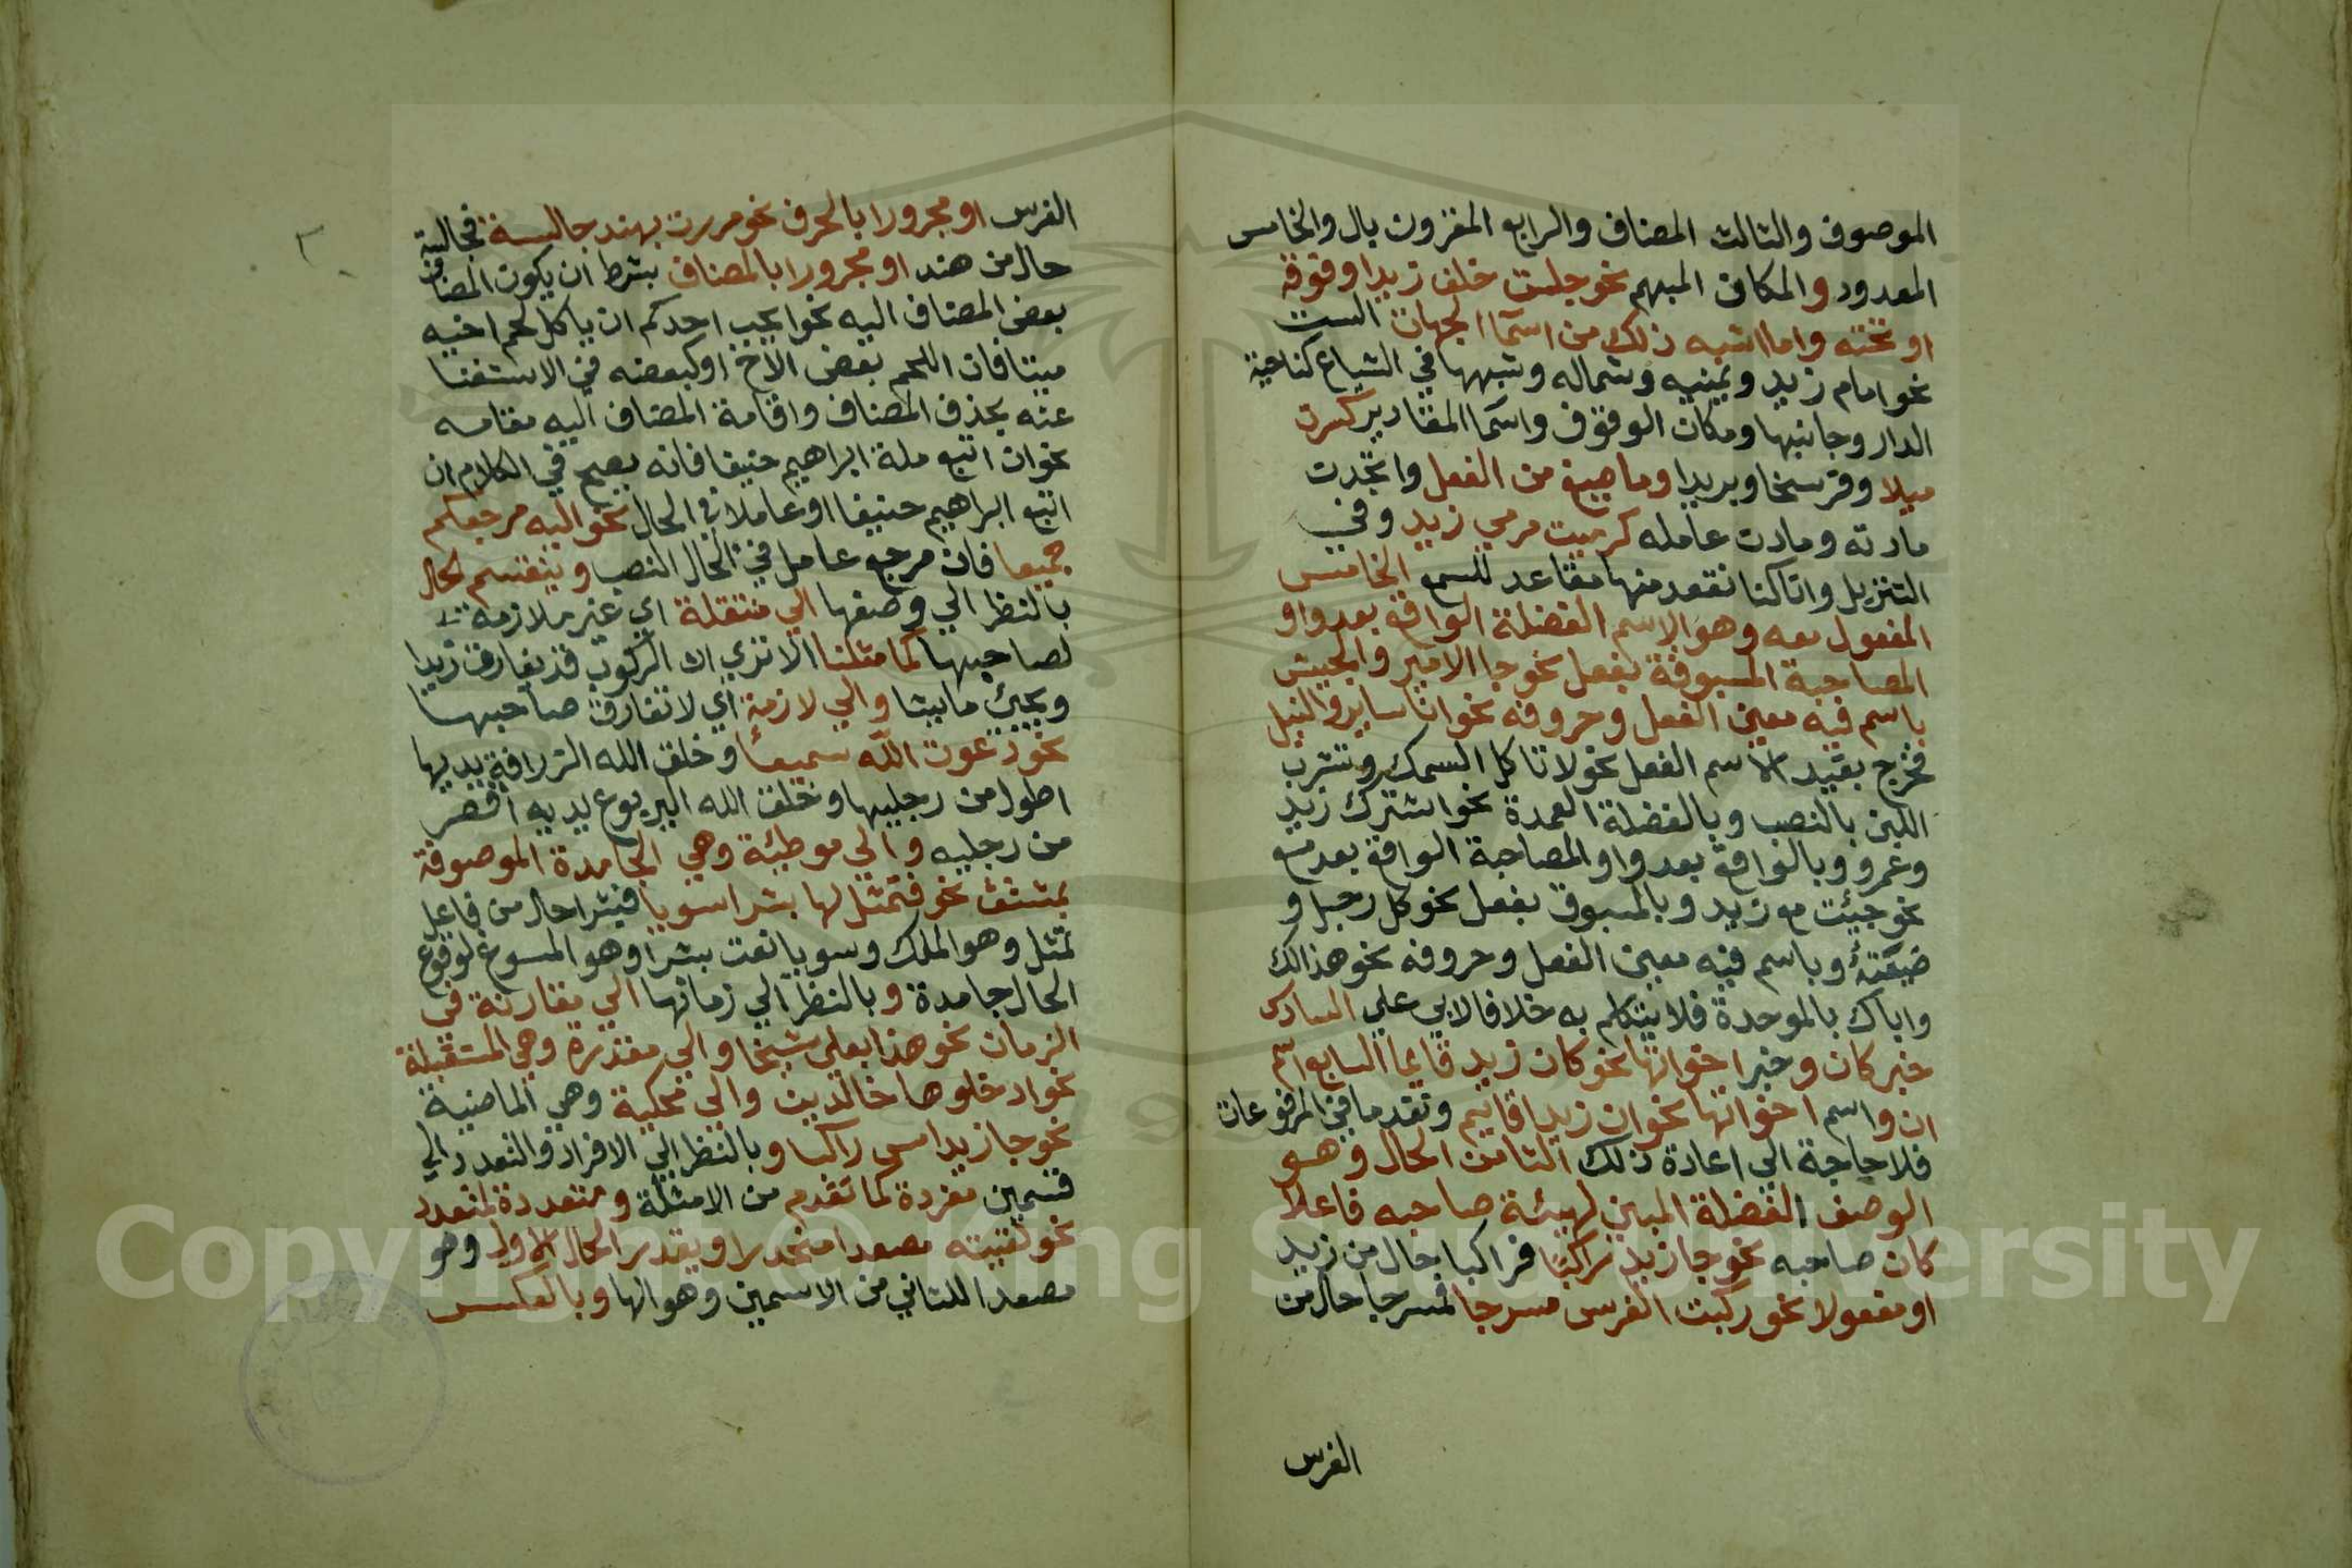 الموصوف والثالث المضاف والرابع المقرون بال والخامس
المعدود والمكان المبهم نحو جلست خلف زيد او فوقه
او تحته وما اشبه ذلك من اسما الجهات الست
نحو امام زيد ويمينه وشماله وشبهها في الشياع كناحية
الدار وجانبها ومكان الوقوف واسما المقادير كسرت
ميلا وفرسخا وبريدا وما صيغ من الفعل واتحدت
مادته ومادت عامله كرميت مرمي زيد وفي
التنزيل وانا كنا نقعد منها مقاعد للسمع الخامس
المفعول معه وهو الاسم الفضلة الواقع بعد واو
المصاحبة المسبوقة بفعل نحو جا الامير والجيش
باسم فيه معنى الفعل وحروفه نحو انا ساير والنيل
فخرج بقيد الاسم الفعل نحو لا تاكل السمك وتشرب
اللبن بالنصب وبالفضلة العمدة نحو اشترك زيد
وعمرو وبالواقع بعد واو المصاحبة الواقع بعد مع
نحو جيئت مع زيد وبالمسبوق بفعل نحو كل رجل و
ضيعته وباسم فيه معنى الفعل وحروفه نحو هذا لك
واباك بالموحدة فلا يتكلم به خلافا لابي علي السادس
خبر كان وخبر اخواتها نحو كان زيد قايما السابع اسم
ان واسم اخواتها نحو ان زيدا قايم وتقدما في المرفوعات
فلا حاجة الي اعادة ذلك الثامن الحال وهو
الوصف الفضلة المبين لهيئة صاحبه فاعلا
كان صاحبه نحو جا زيد راكبا فراكبا حال من زيد
او مفعولا نحو ركبت الفرس مسرجا فمسرجا حال من
الفرس
الفرس او مجرورا بالحرف نحو مررت بهند جالسة فجالسة
حال من هند او مجرورا بالمضاف بشرط ان يكون المضاف
بعض المضاف اليه نحو ايحب احدكم ان ياكل لحم اخيه
ميتا فان اللحم بعض الاخ او كبعضه في الاستغنا
عنه بحذف المضاف واقامة المضاف اليه مقامه
نحو ان اتبع ملة ابراهيم حنيفا فانه يصح في الكلام ان
اتبع ابراهيم حنيفا او عاملا في الحال نحو اليه مرجعكم
جميعا فان مرجع عامل في الحال النصب وينقسم الحال
بالنظر الي وصفها الي منتقلة اي غير ملازمة
لصاحبها كما مثلنا الا تري ان الركوب قد يفارق زيدا
ويجيئ ماشيا والي لازمة اي لا تفارق صاحبها
نحو دعوت الله سميعا وخلق الله الزرافة يديها
اطول من رجليها وخلق الله اليربوع يديه اقصر
من رجليه والي موطئة وهي الجامدة الموصوفة
بمشتق نحو فتمثل لها بشرا سويا فبشرا حال من فاعل
تمثل وهو الملك وسويا نعت بشرا وهو المسوغ لوقوع
الحال جامدة وبالنظر الي زمانها الي مقارنة في
الزمان نحو هذا بعلي شيخا والي مقدرة وهي المستقبلة
نحو ادخلوها خالدين والي محكية وهي الماضية
نحو جا زيد امس راكبا وبالنظر الي الافراد والتعدد الي
قسمين مفردة كما تقدم من الامثلة ومتعددة لمتعدد
نحو لقيته مصعدا منحدرا ويقدر الحال الاول وهو
مصعدا للثاني من الاسمين وهو الها وبالعكس
Copyright © King Saud University